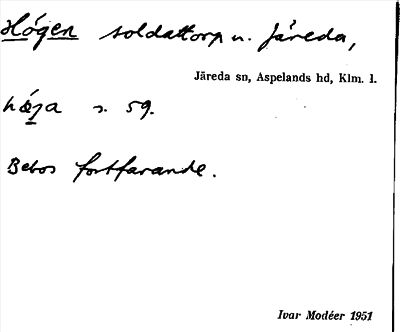 Högen soldattorp u. Järeda,
Järeda sn, Aspelands hd, Klm. l.
s. 59.
Bebos fortfarande.
Ivar Modéer 1951